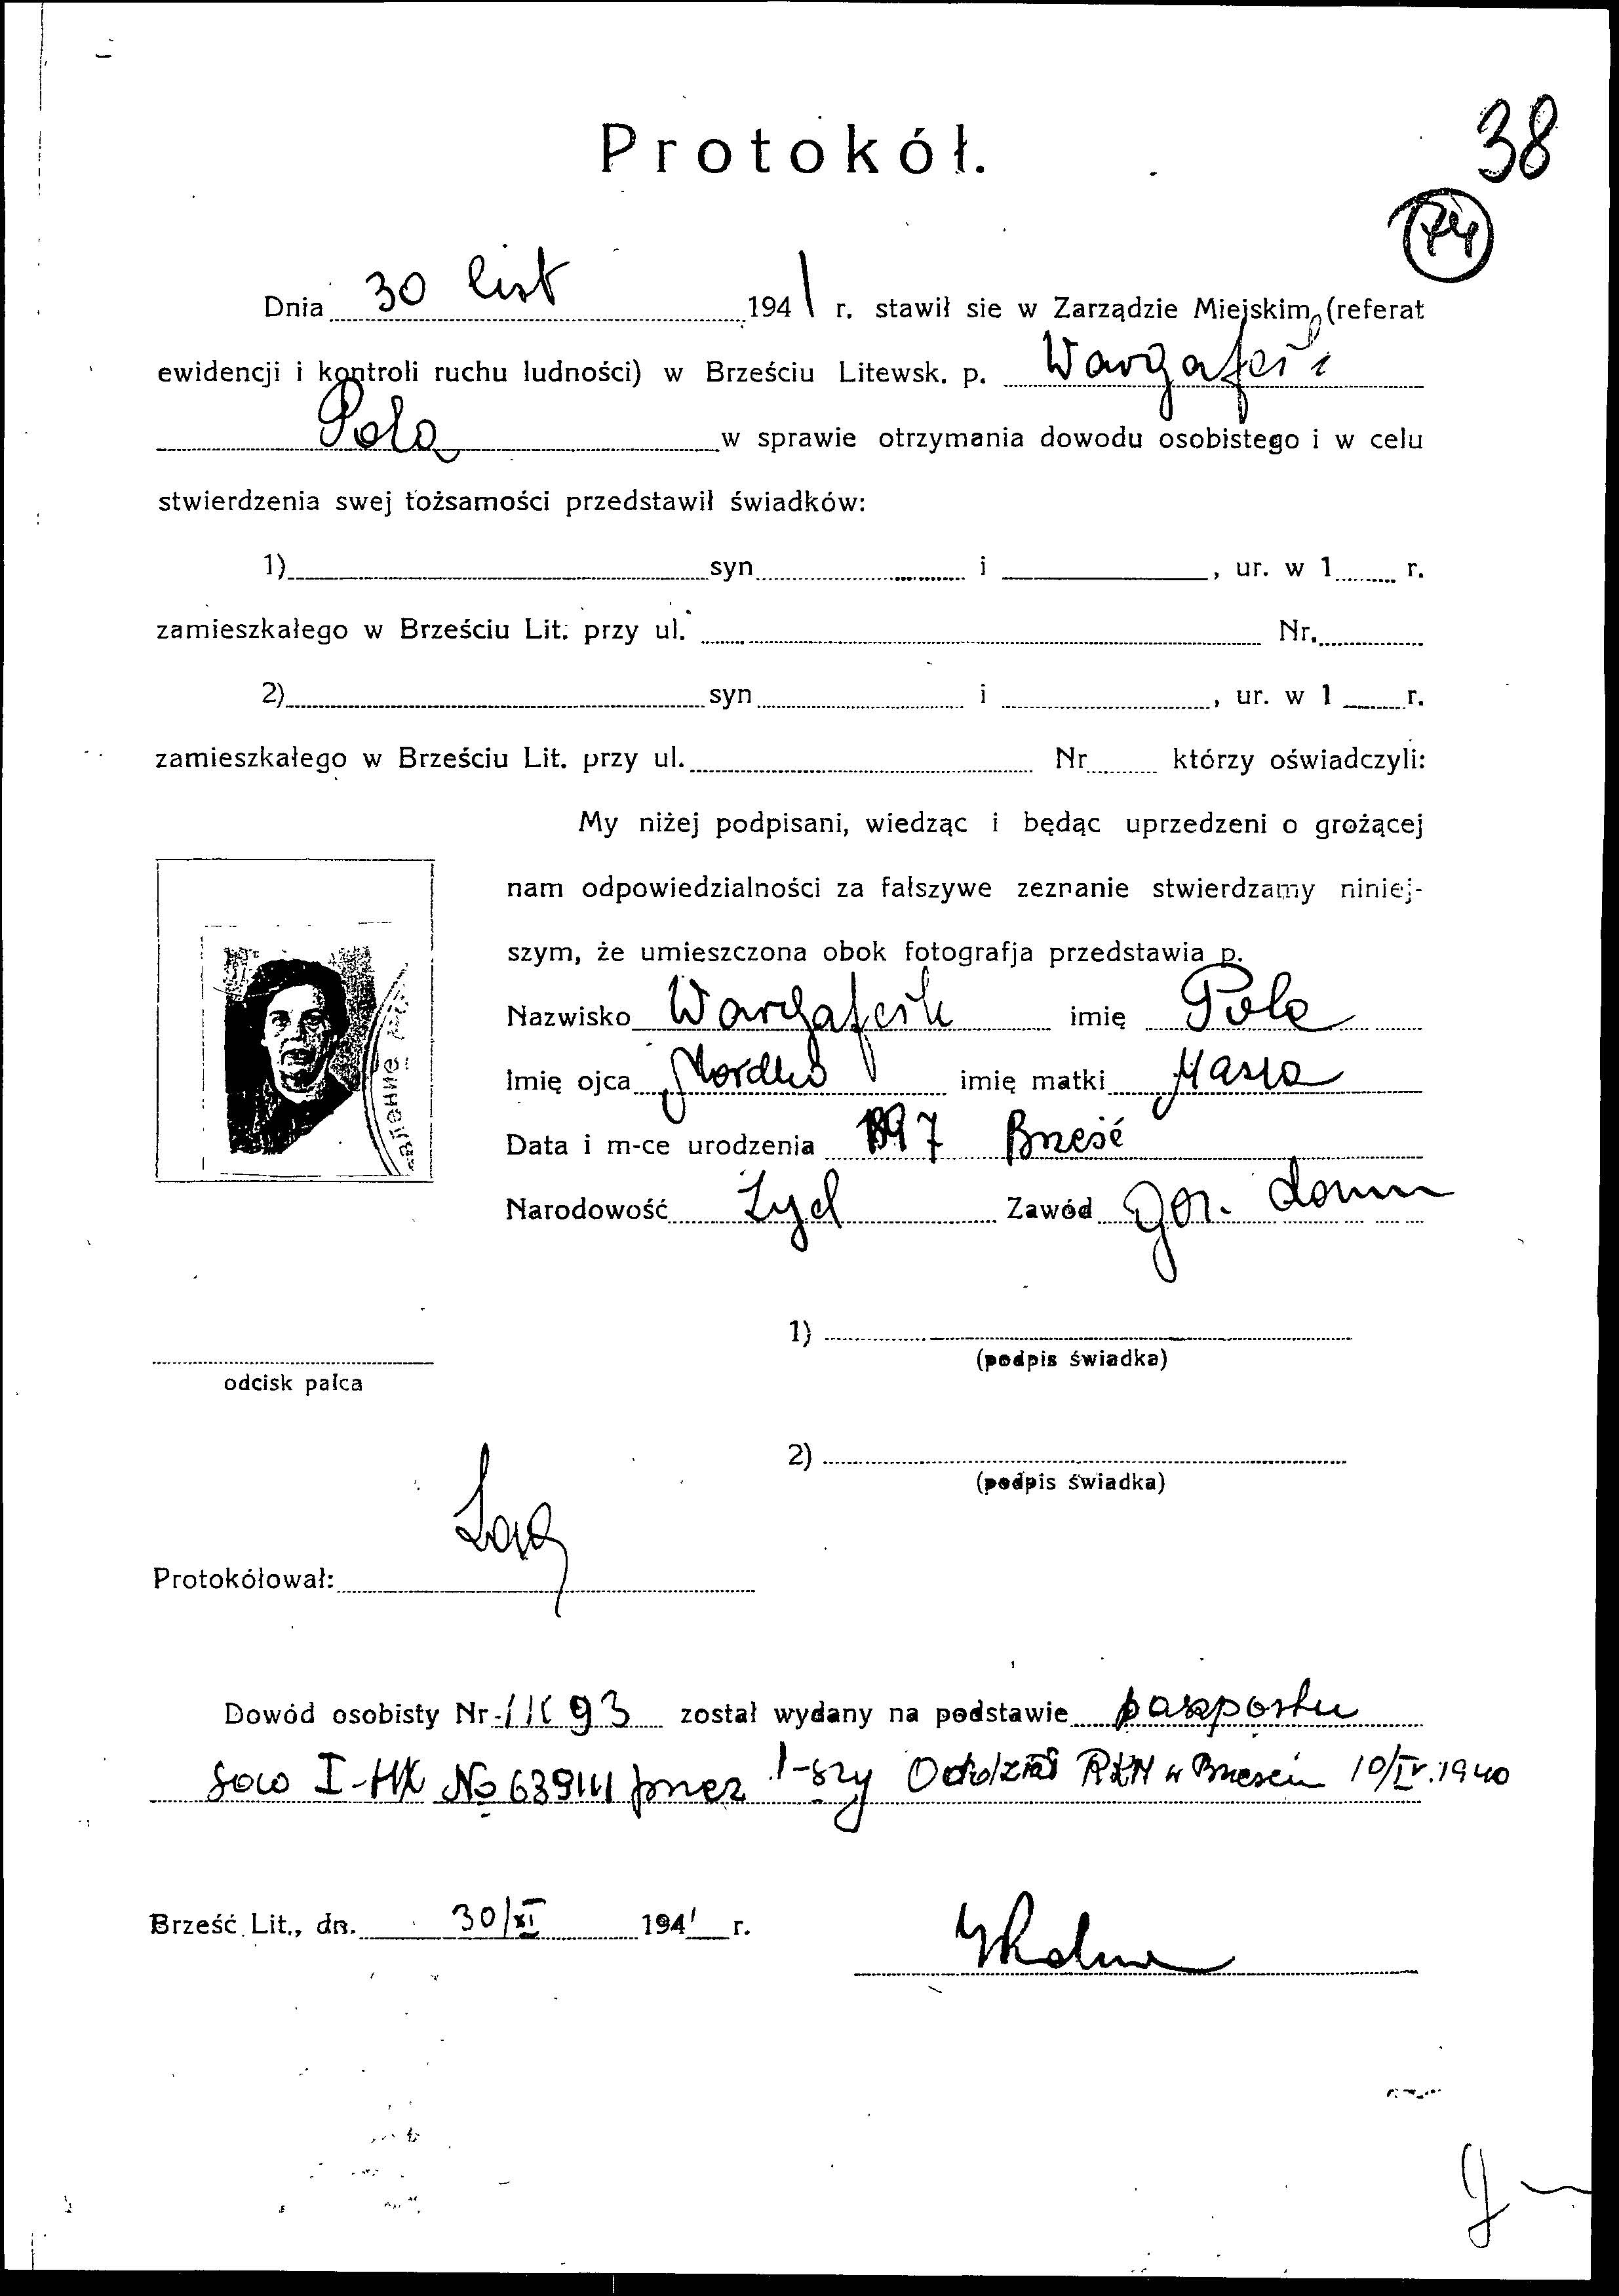 Protokół.
38
74
Dnia 30 list 1941 r. stawił sie w Zarządzie Miejskim (referat
ewidencji i kontroli ruchu ludności) w Brześciu Litewsk. p. Wargaftik
Pola w sprawie otrzymania dowodu osobistego i w celu
stwierdzenia swej tożsamości przedstawił świadków:
1) syn i , ur. w 1 r.
zamieszkałego w Brześciu Lit. przy ul. Nr.
2) syn i , ur. w 1 r.
zamieszkałego w Brześciu Lit. przy ul. Nr którzy oświadczyli:
My niżej podpisani, wiedząc i będąc uprzedzeni o grożącej
nam odpowiedzialności za fałszywe zeznanie stwierdzamy niniej-
szym, że umieszczona obok fotografja przedstawia p.
Nazwisko Wargaftik imię Pola
Imię ojca Mordko imię matki Masia
Data i m-ce urodzenia 1897 Brześć
Narodowość Żyd Zawód gos. domu
1)
(podpis świadka)
odcisk palca
2)
(podpis świadka)
Protokółował:
Dowód osobisty Nr 11693 został wydany na podstawie paszportu
sow I-НК No 639141 przez I-szy Oddział RKM w Brześciu 10/IV.1940
Brześć Lit., dn. 30/XI 1941 r.